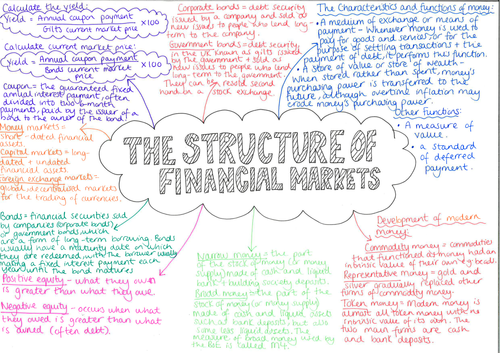 Calculate the yield:
Yield = Annual coupon payment X100
Gilts current market price
Calculate current market price:
Yield = Annual coupon payment X100
Bonds current market
price
Coupon = the guaranteed fixed
annual interest payment, often
divided into two 6-month
payments, paid by the issuer of a
bond to the owner of the bond.
Money markets =
short-dated financial
assets.
Capital markets = long-
dated + undated
financial assets.
Foreign exchange markets =
global, decentralised markets
for the trading of currencies.
Bonds = financial securities sold
by companies (corporate bonds)
or government bonds which
are a form of long-term borrowing. Bonds
usually have a maturity date on which
they are redeemed, with the borrower usually
making a fixed interest payment each
year until the bond matures
Positive equity - what they own
is greater than what they owe.
Negative equity - occurs when what
they owed is greater than what
is owned (often debt).
Corporate bonds = debt security
issued by a company and sold as
new issues to people who lend long-
term to the company.
Government bonds = debt security
in the UK known as gilts issued
by the government + sold as
new issues to people who lend
long-term to the government.
They can be resold second
hand on a stock exchange.
THE STRUCTURE OF
FINANCIAL MARKETS
Narrow money = the part
of the stock of money (or money
supply) made of cash and liquid
bank + building society deposits.
Broad money = the part of the
stock of money (or money supply)
made of cash and liquid assets
such as bank deposits but also
some less liquid assets. The
measure of broad money used by
the BoE is called M4.
The Characteristics and functions of money:
• A medium of exchange or means of
payment - whenever money is used to
pay for goods and services or for the
purpose of settling transactions + the
payment of debt, it performs this function.
• A store of value or store of wealth -
When stored rather than spent, money's
purchasing power is transferred to the
future, although overtime inflation may
erode money's purchasing power.
Other Functions:
• A measure of
value.
• a standard
of deferred
payment.
Development of modern
money:
Commodity money = commodities
that functioned as money had an
intrinsic value of their own eg beads
Representative money = gold and
silver gradually replaced other
forms of commodity money.
Token money = Modern money is
almost all token money with no
intrinsic value of its own. The
two main forms are cash
and bank deposits.